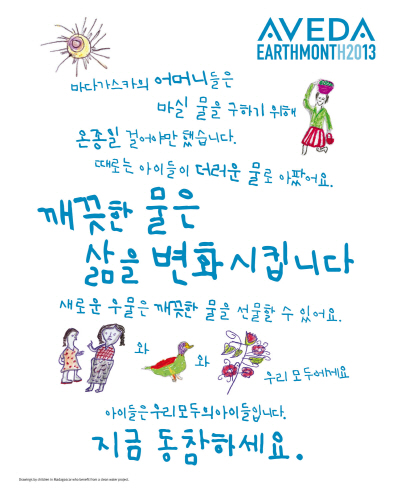 AVEDA
EARTHMONTH2013
마다가스카의 어머니들은
마실 물을 구하기 위해
온종일 걸어야만 했습니다.
때로는 아이들이 더러운 물로 아팠어요.
깨끗한 물은
삶을 변화시킵니다
새로운 우물은 깨끗한 물을 선물할 수 있어요.
와 와
우리 모두에게요
아이들은 우리 모두의 아이들입니다.
지금 동참하세요.
Drawings by children in Madagascar who benefit from a clean water project.